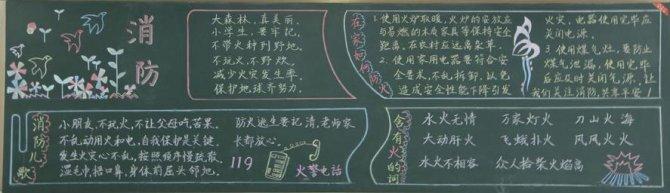 消防
大森林，真美丽。
小学生，要牢记。
不带火种到野地，
不玩火，不野炊。
减少火灾发生率，
保护地球齐努力。
在家如何防火
1.使用火炉取暖，火炉的安放应
与易燃的木质家具等保持安全
距离，在农村应远离柴草。
2.使用家用电器要符合安
全要求，不乱拆卸，以免
造成安全性能下降引发
火灾，电器使用完毕应
关闭电源。
3.使用煤气灶，要防止
煤气泄漏，使用完毕
后应及时关闭气源，让
我们关注消防，共享平安！
消防儿歌
小朋友，不玩火，不让父母吃苦果。
不乱动用火和电，自我保护是关键。
发生火灾心不乱，按照顺序慢疏散。
湿毛巾捂口鼻，身体前屈头邻地。
防火逃生要记清，老师家
长都放心。
119
火警电话
含有火的词
水火无情 万家灯火 刀山火海
大动肝火 飞蛾扑火 风风火火
水火不相容 众人拾柴火焰高